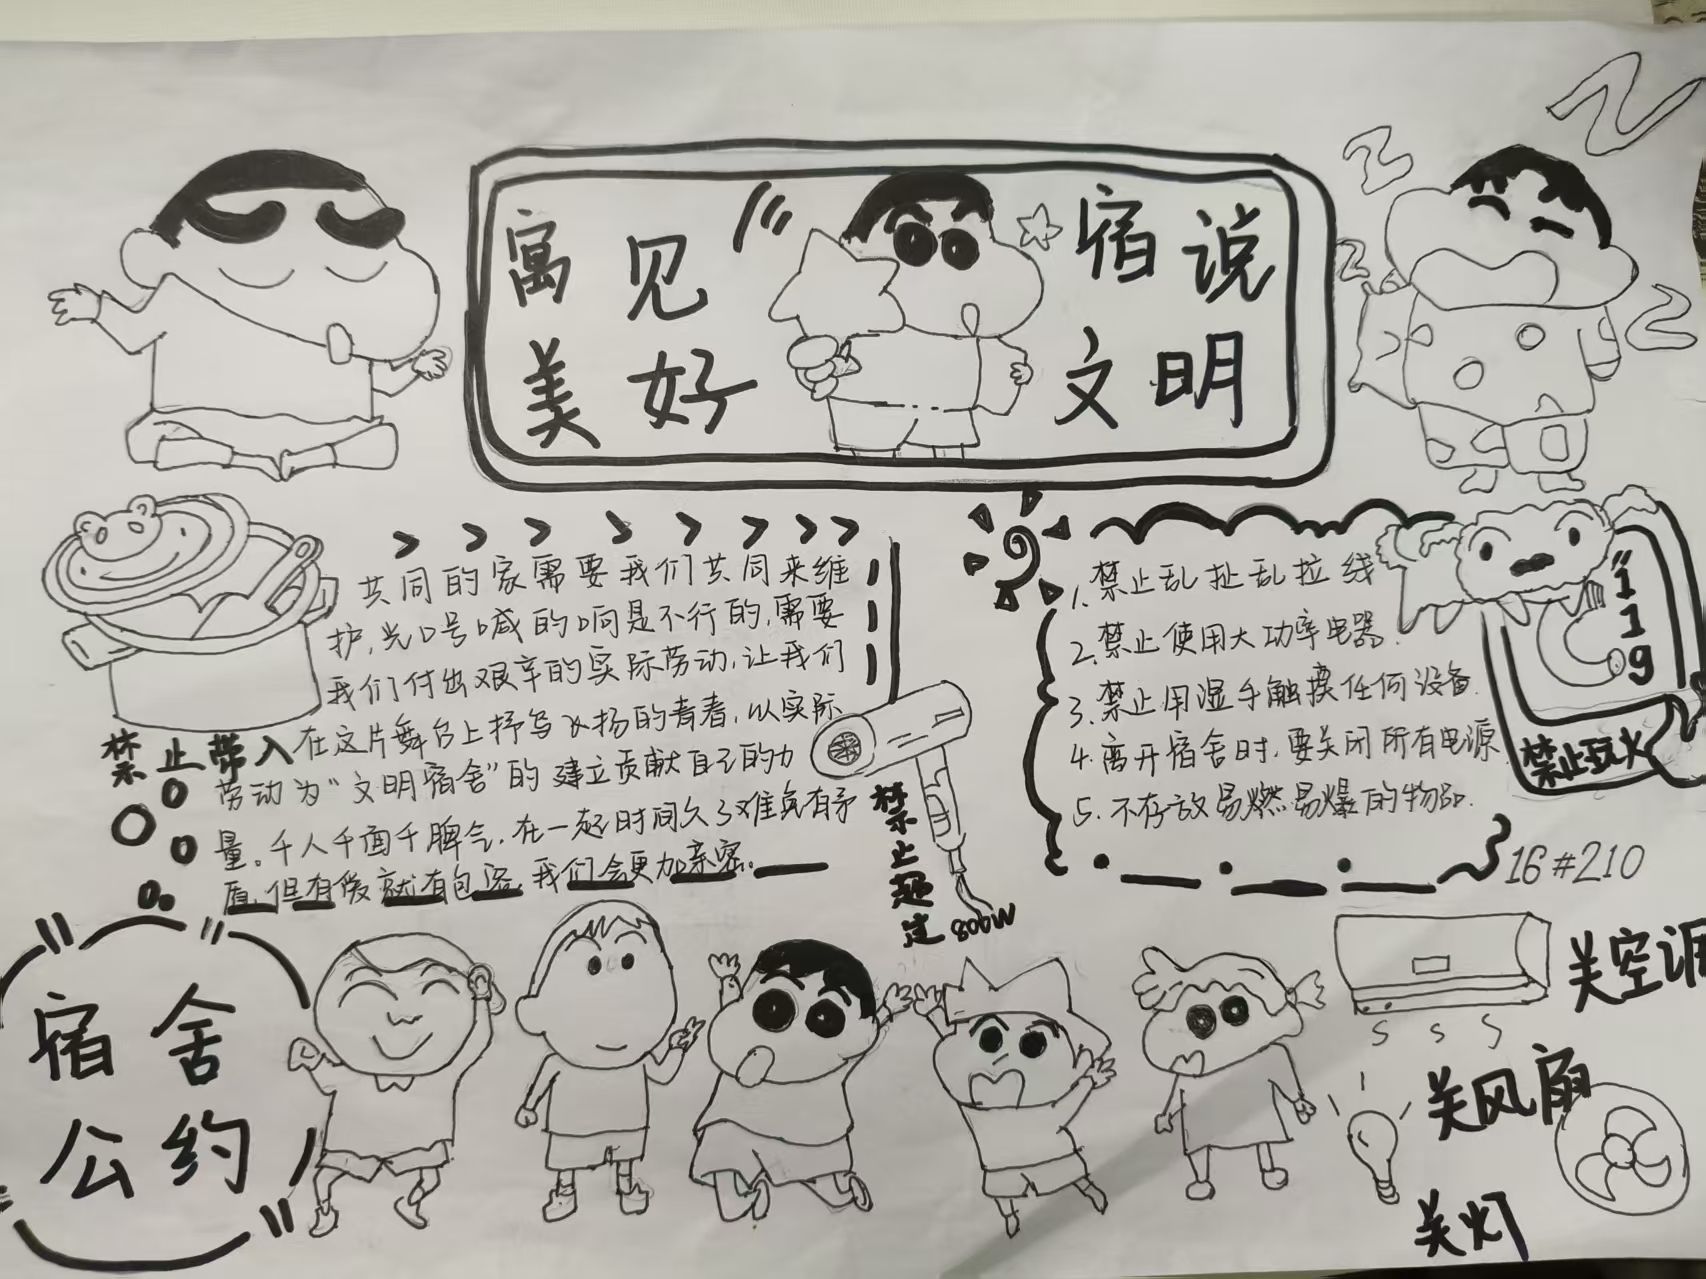 寓见
美好
宿说
文明
共同的家需要我们共同来维
护,光口号喊的响是不行的,需要
我们付出艰辛的实际劳动,让我们
在这片舞台上抒写飞扬的青春,以实际
劳动为“文明宿舍”的建立贡献自己的力
量。千人千面千脾气,在一起时间久了难免有矛
盾,但有缘就有包容,我们会更加亲密。
禁止带入
禁止超过800W
1.禁止乱扯乱拉线
2.禁止使用大功率电器.
3.禁止用湿手触摸任何设备.
4.离开宿舍时,要关闭所有电源.
5.不存放易燃易爆的物品.
119
禁止玩火
16#210
宿舍
公约
关空调
关风扇
关灯